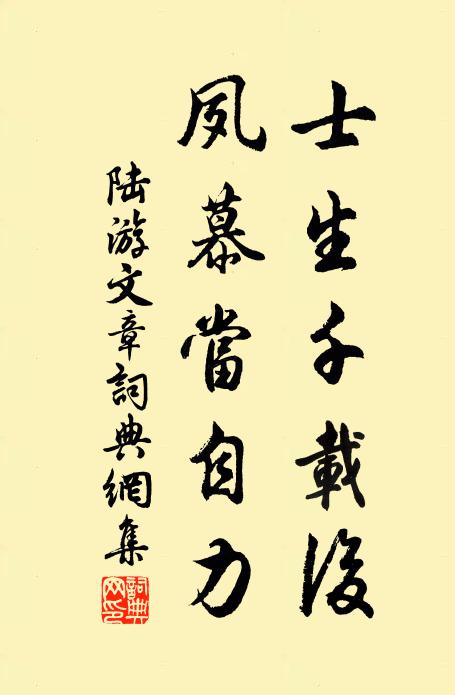 士生千載後
夙慕當自力
陸游文章詞典網集
詞典
网印